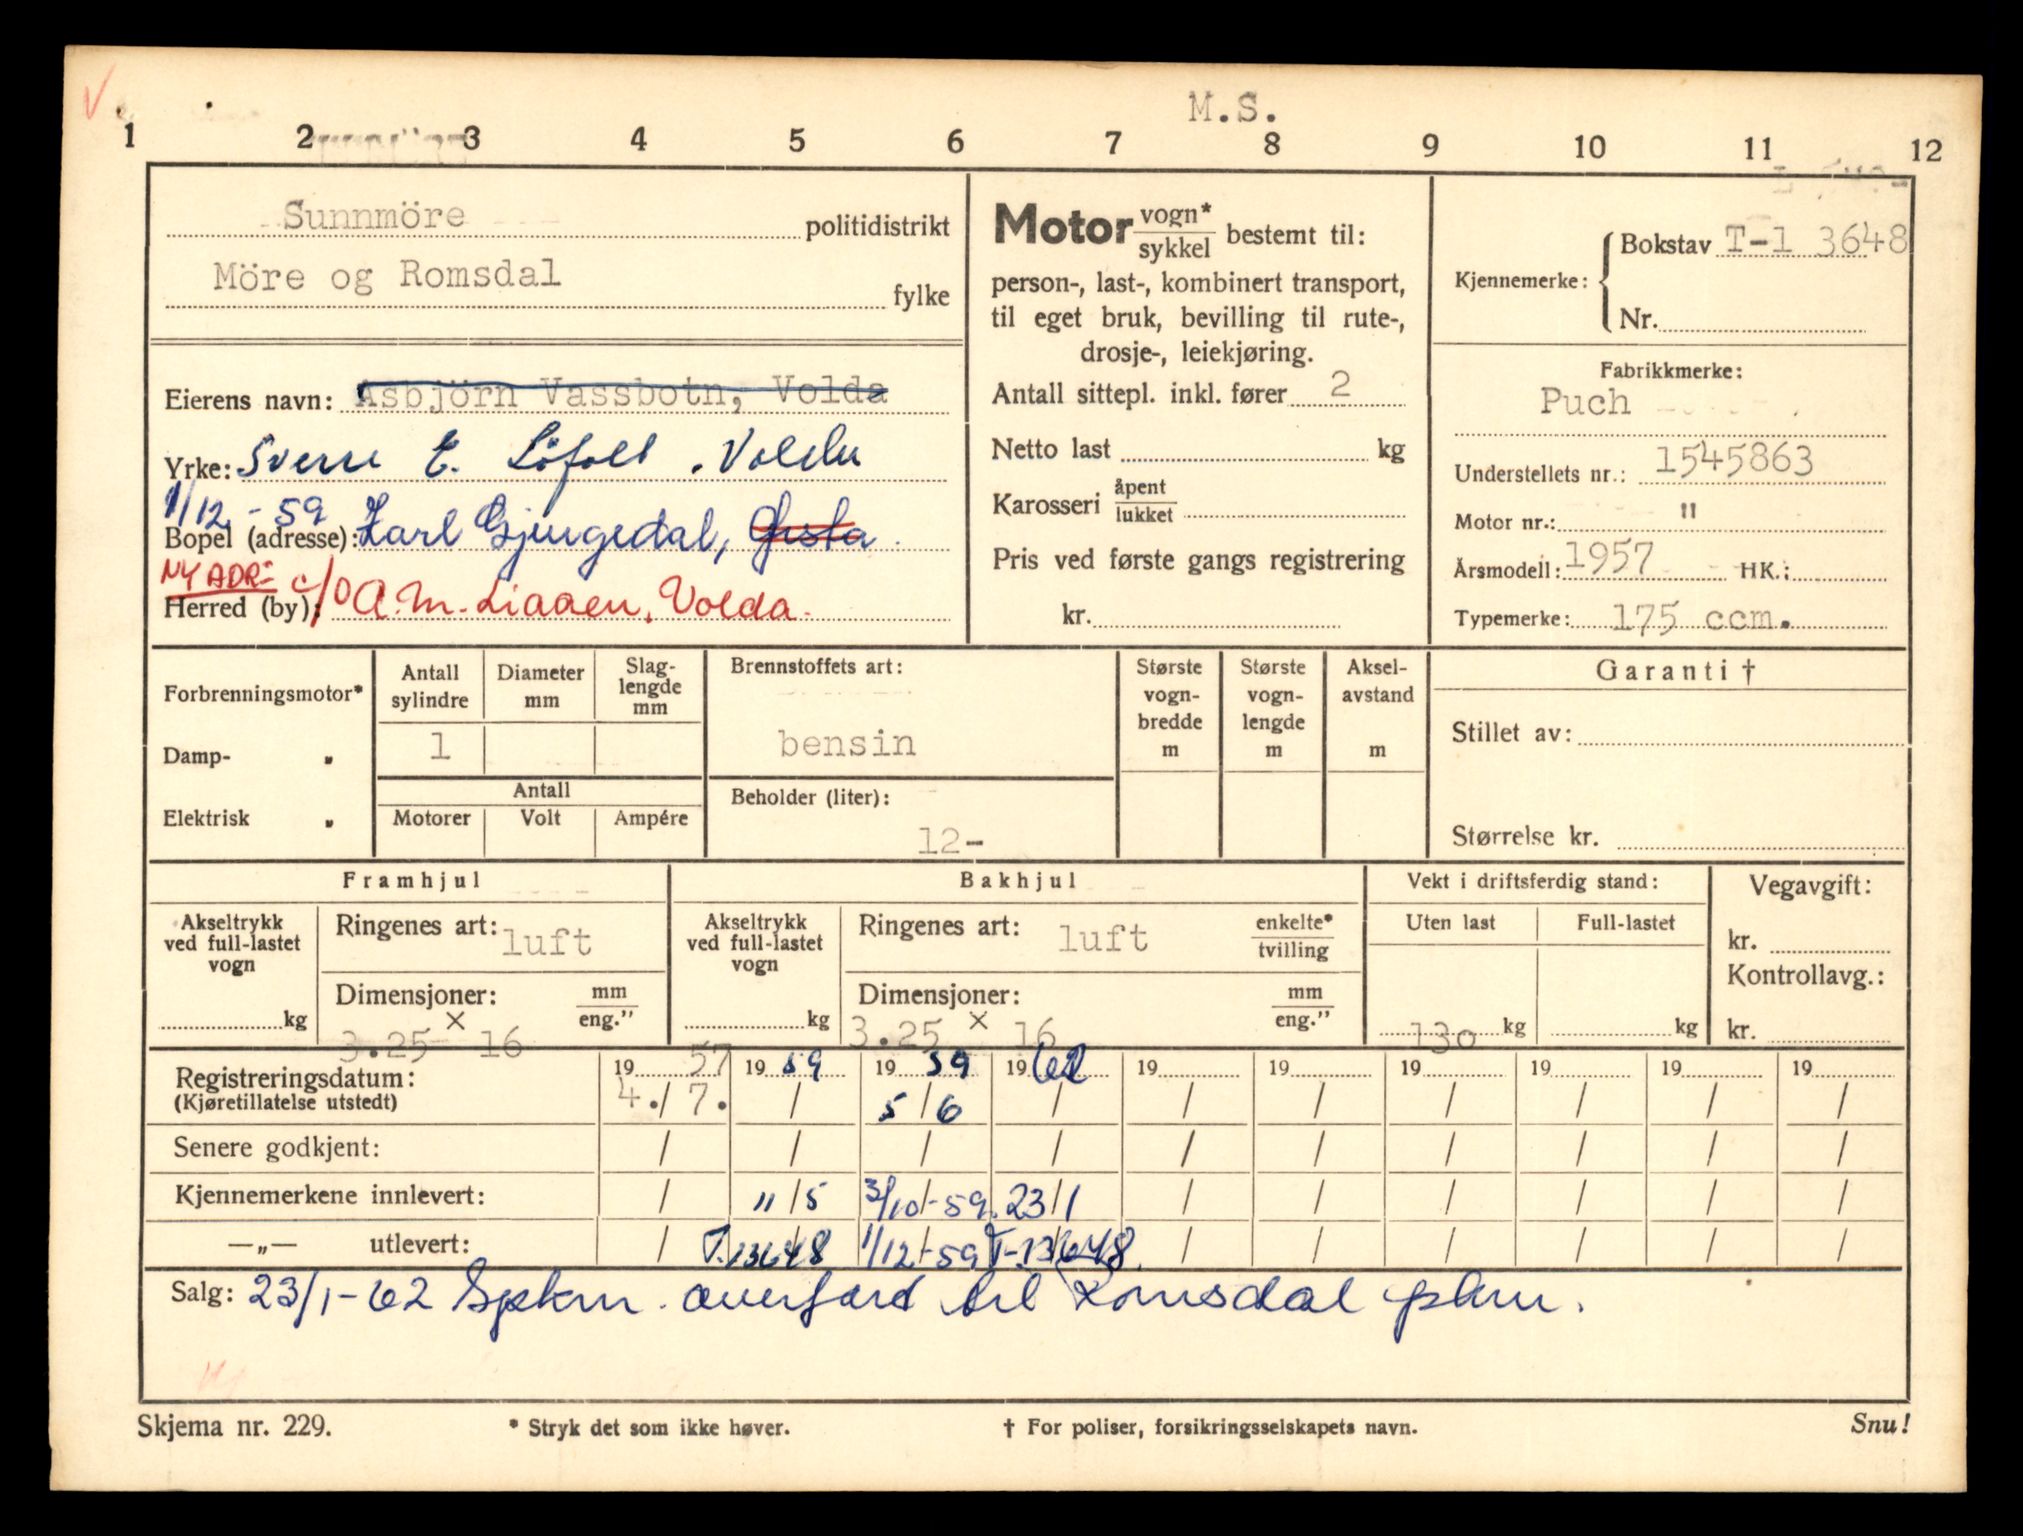 M.S.
1 2 3 4 5 6 7 8 9 10 11 12
Sunnmöre politidistrikt
Möre og Romsdal fylke
Eierens navn: Asbjörn Vassbotn, Volda
Yrke: Sverre E. Löfoll . Volda
1/12 - 59
Bopel (adresse): Karl Gjengedal,
NY ADR: c/o A.M. Liaaen, Volda.
Herred (by):
Motor vogn*/sykkel bestemt til:
person-, last-, kombinert transport,
til eget bruk, bevilling til rute-,
drosje-, leiekjøring.
Antall sittepl. inkl. fører 2
Netto last kg
Karosseri åpent/lukket
Pris ved første gangs registrering
kr.
Kjennemerke: Bokstav T-1 3648
Nr.
Fabrikkmerke:
Puch
Understellets nr.: 1545863
Motor nr.: "
Årsmodell: 1957 HK.:
Typemerke: 175 ccm.
Forbrenningsmotor*
Damp- „
Elektrisk „
Antall sylindre
Diameter mm
Slag-lengde mm
1
Antall
Motorer Volt Ampére
Brennstoffets art:
bensin
Beholder (liter):
12-
Største vogn-bredde m
Største vogn-lengde m
Aksel-avstand m
Garanti †
Stillet av:
Størrelse kr.
Framhjul
Akseltrykk ved full-lastet vogn
kg
Ringenes art: luft
Dimensjoner: mm/eng."
3.25 × 16
Bakhjul
Akseltrykk ved full-lastet vogn
kg
Ringenes art: luft enkelte*/tvilling
Dimensjoner: mm/eng."
3.25 × 16
Vekt i driftsferdig stand:
Uten last Full-lastet
130 kg kg
Vegavgift:
kr.
Kontrollavg.:
kr.
19 57 19 59 19 59 19 62 19 19 19 19 19 19
Registreringsdatum:
(Kjøretillatelse utstedt) 4./7. / 5/6 / / / / / / /
Senere godkjent: / / / / / / / / / /
Kjennemerkene innlevert: / 11/5 3/10-59. 23/1 / / / / / /
—„— utlevert: / T.13648 1/12-59 T-13648. / / / / / /
Salg: 23/1-62 Spkm. overført til Romsdal pkm.
Skjema nr. 229.
* Stryk det som ikke høver.
† For poliser, forsikringsselskapets navn.
Snu!